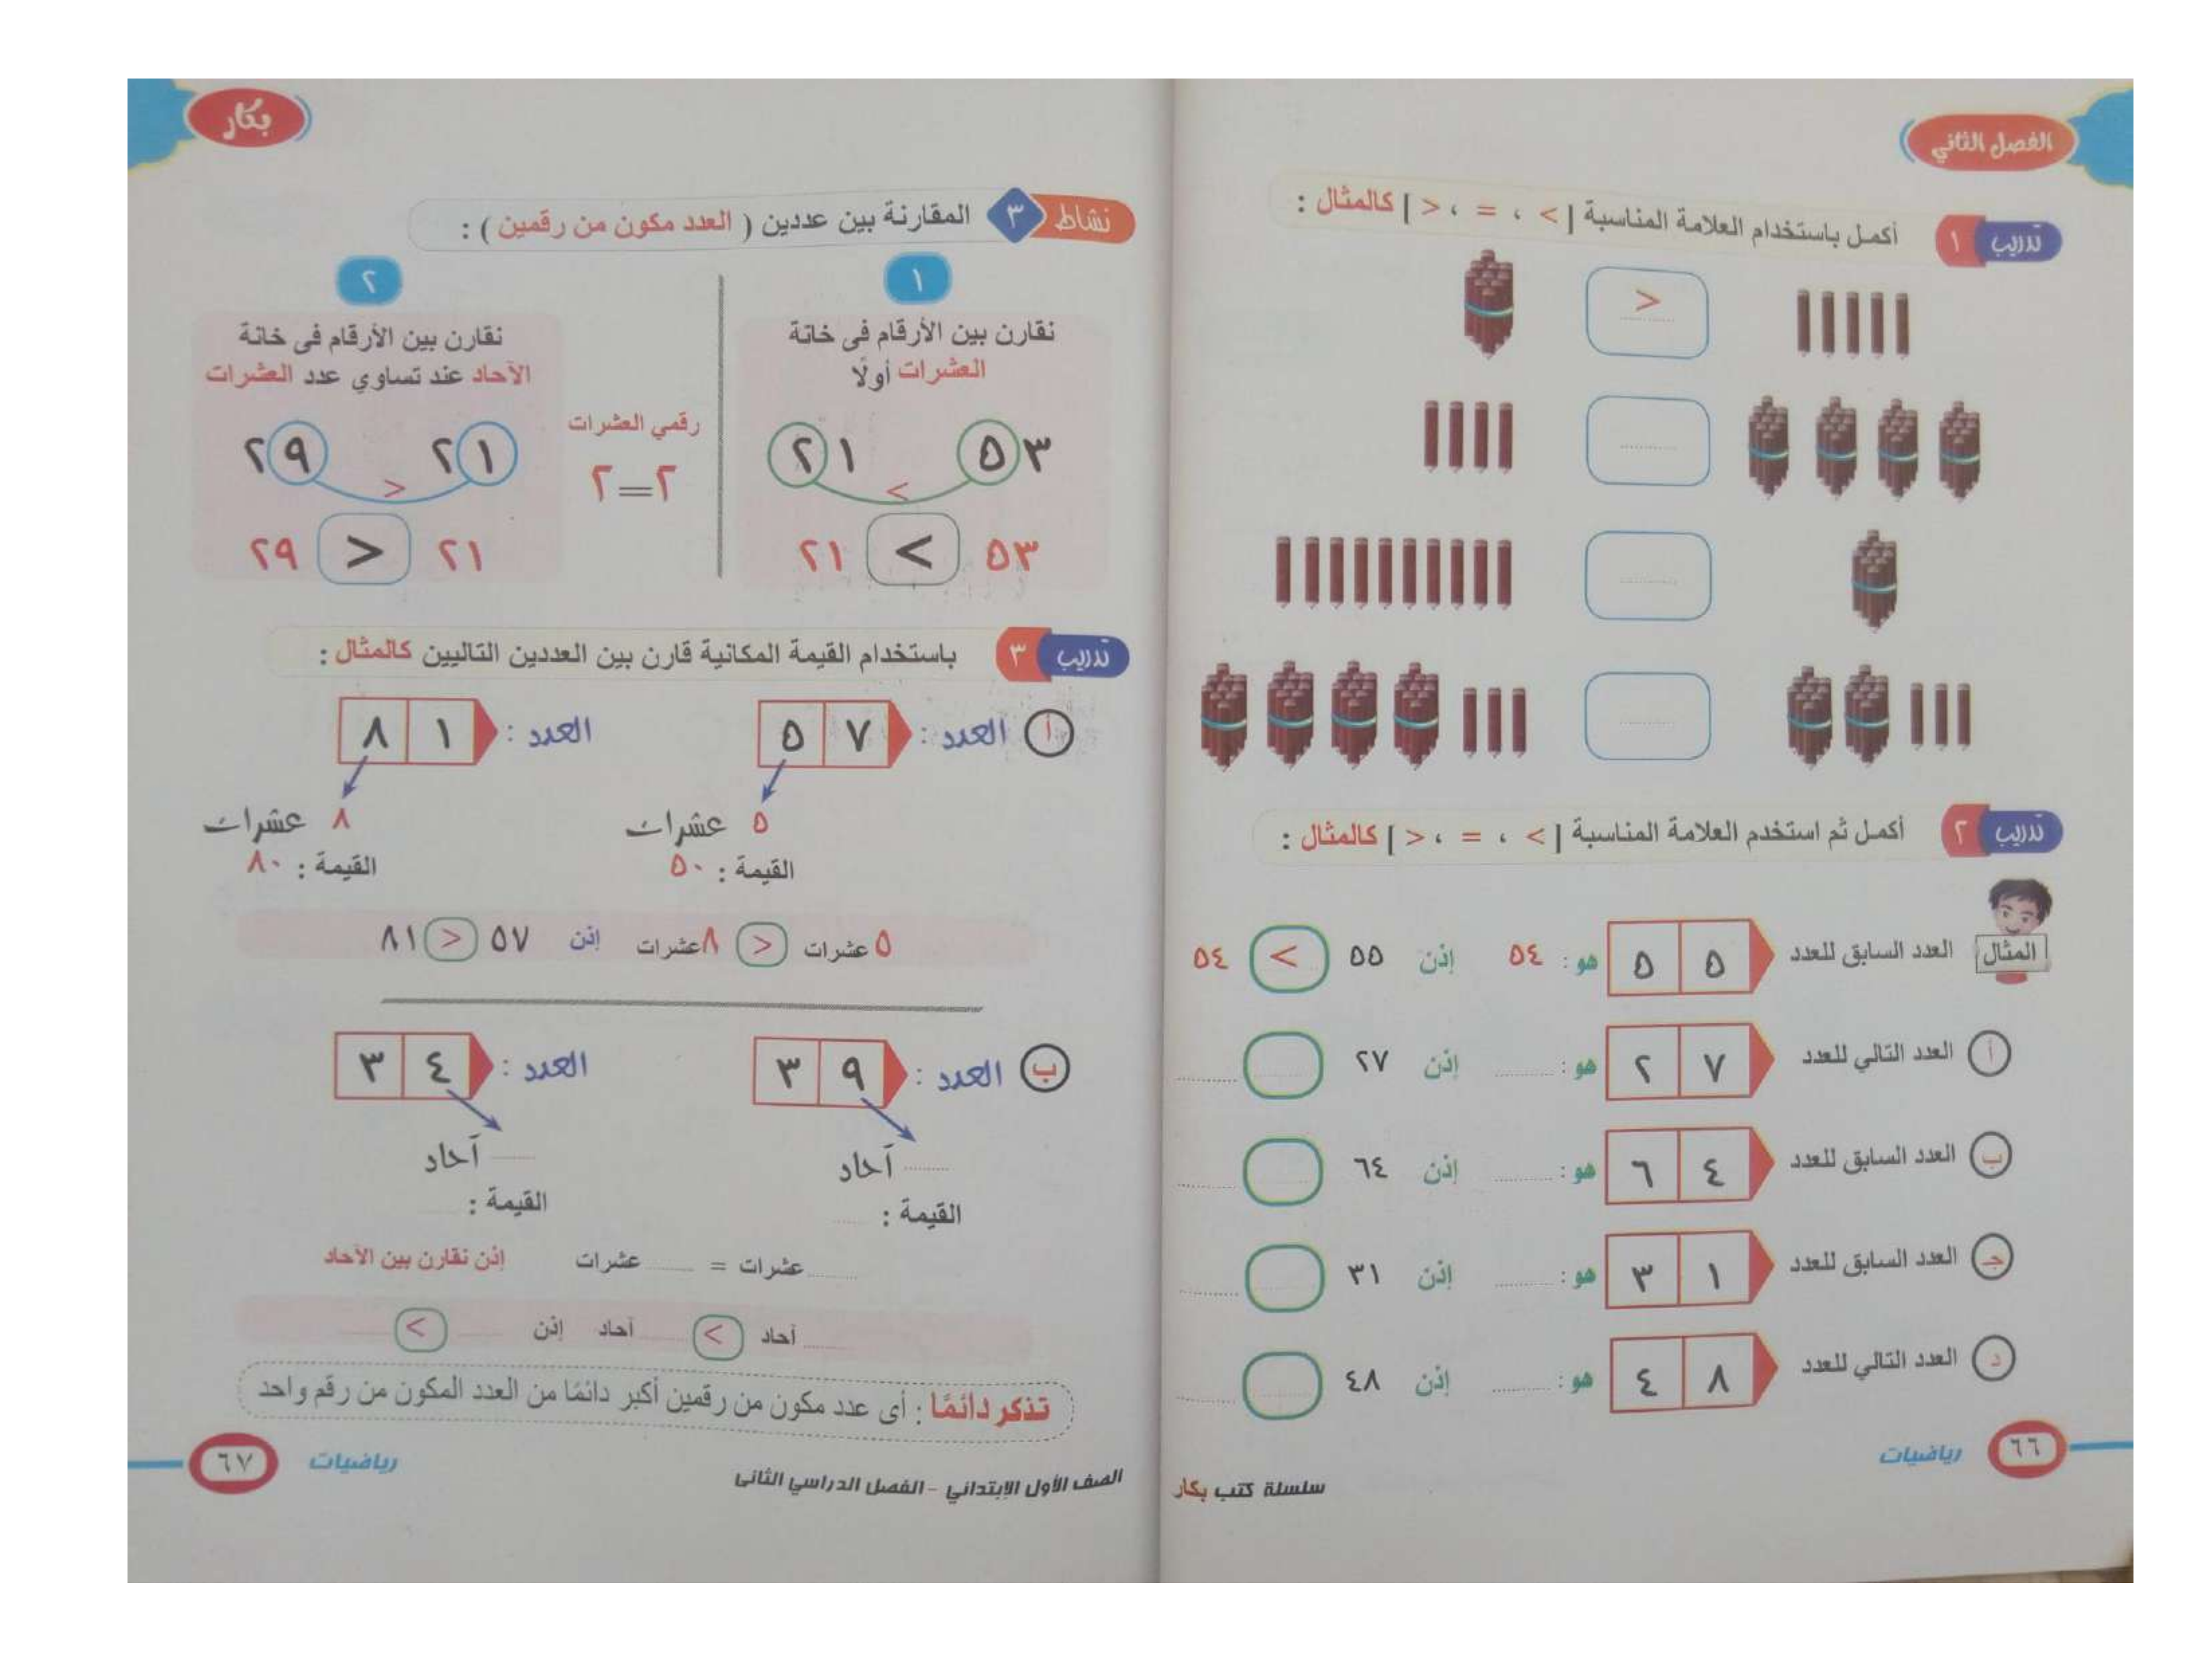 الفصل الثاني
تدريب ١ أكمل باستخدام العلامة المناسبة [ > ، = ، < ] كالمثال :
>
............
............
............
تدريب ٢ أكمل ثم استخدم العلامة المناسبة [ > ، = ، < ] كالمثال :
المثال العدد السابق للعدد ٥٥ هو : ٥٤ إذن ٥٥ < ٥٤
أ العدد التالي للعدد ٢٧ هو : ............ إذن ٢٧ ............
ب العدد السابق للعدد ٦٤ هو : ............ إذن ٦٤ ............
جـ العدد السابق للعدد ٣١ هو : ............ إذن ٣١ ............
د العدد التالي للعدد ٤٨ هو : ............ إذن ٤٨ ............
٦٦ رياضيات
سلسلة كتب بكار
بكار
نشاط ٣ المقارنة بين عددين ( العدد مكون من رقمين ) :
١
نقارن بين الأرقام فى خانة
العشرات أولًا
٥٣ ٢١
<
٥٣ < ٢١
رقمي العشرات
٢=٢
٢
نقارن بين الأرقام فى خانة
الآحاد عند تساوي عدد العشرات
٢١ ٢٩
>
٢١ > ٢٩
تدريب ٣ باستخدام القيمة المكانية قارن بين العددين التاليين كالمثال :
أ العدد : ٥٧ العدد : ٨١
٥ عشرات ٨ عشرات
القيمة : ٥٠ القيمة : ٨٠
٥ عشرات > ٨ عشرات إذن ٥٧ > ٨١
ب العدد : ٣٩ العدد : ٣٤
............ آحاد ............ آحاد
القيمة : ............ القيمة : ............
............ عشرات = ............ عشرات إذن نقارن بين الآحاد
............ آحاد < ............ آحاد إذن ............ < ............
تذكر دائمًا : أى عدد مكون من رقمين أكبر دائمًا من العدد المكون من رقم واحد
الصف الأول الإبتدائي - الفصل الدراسي الثانى
رياضيات ٦٧